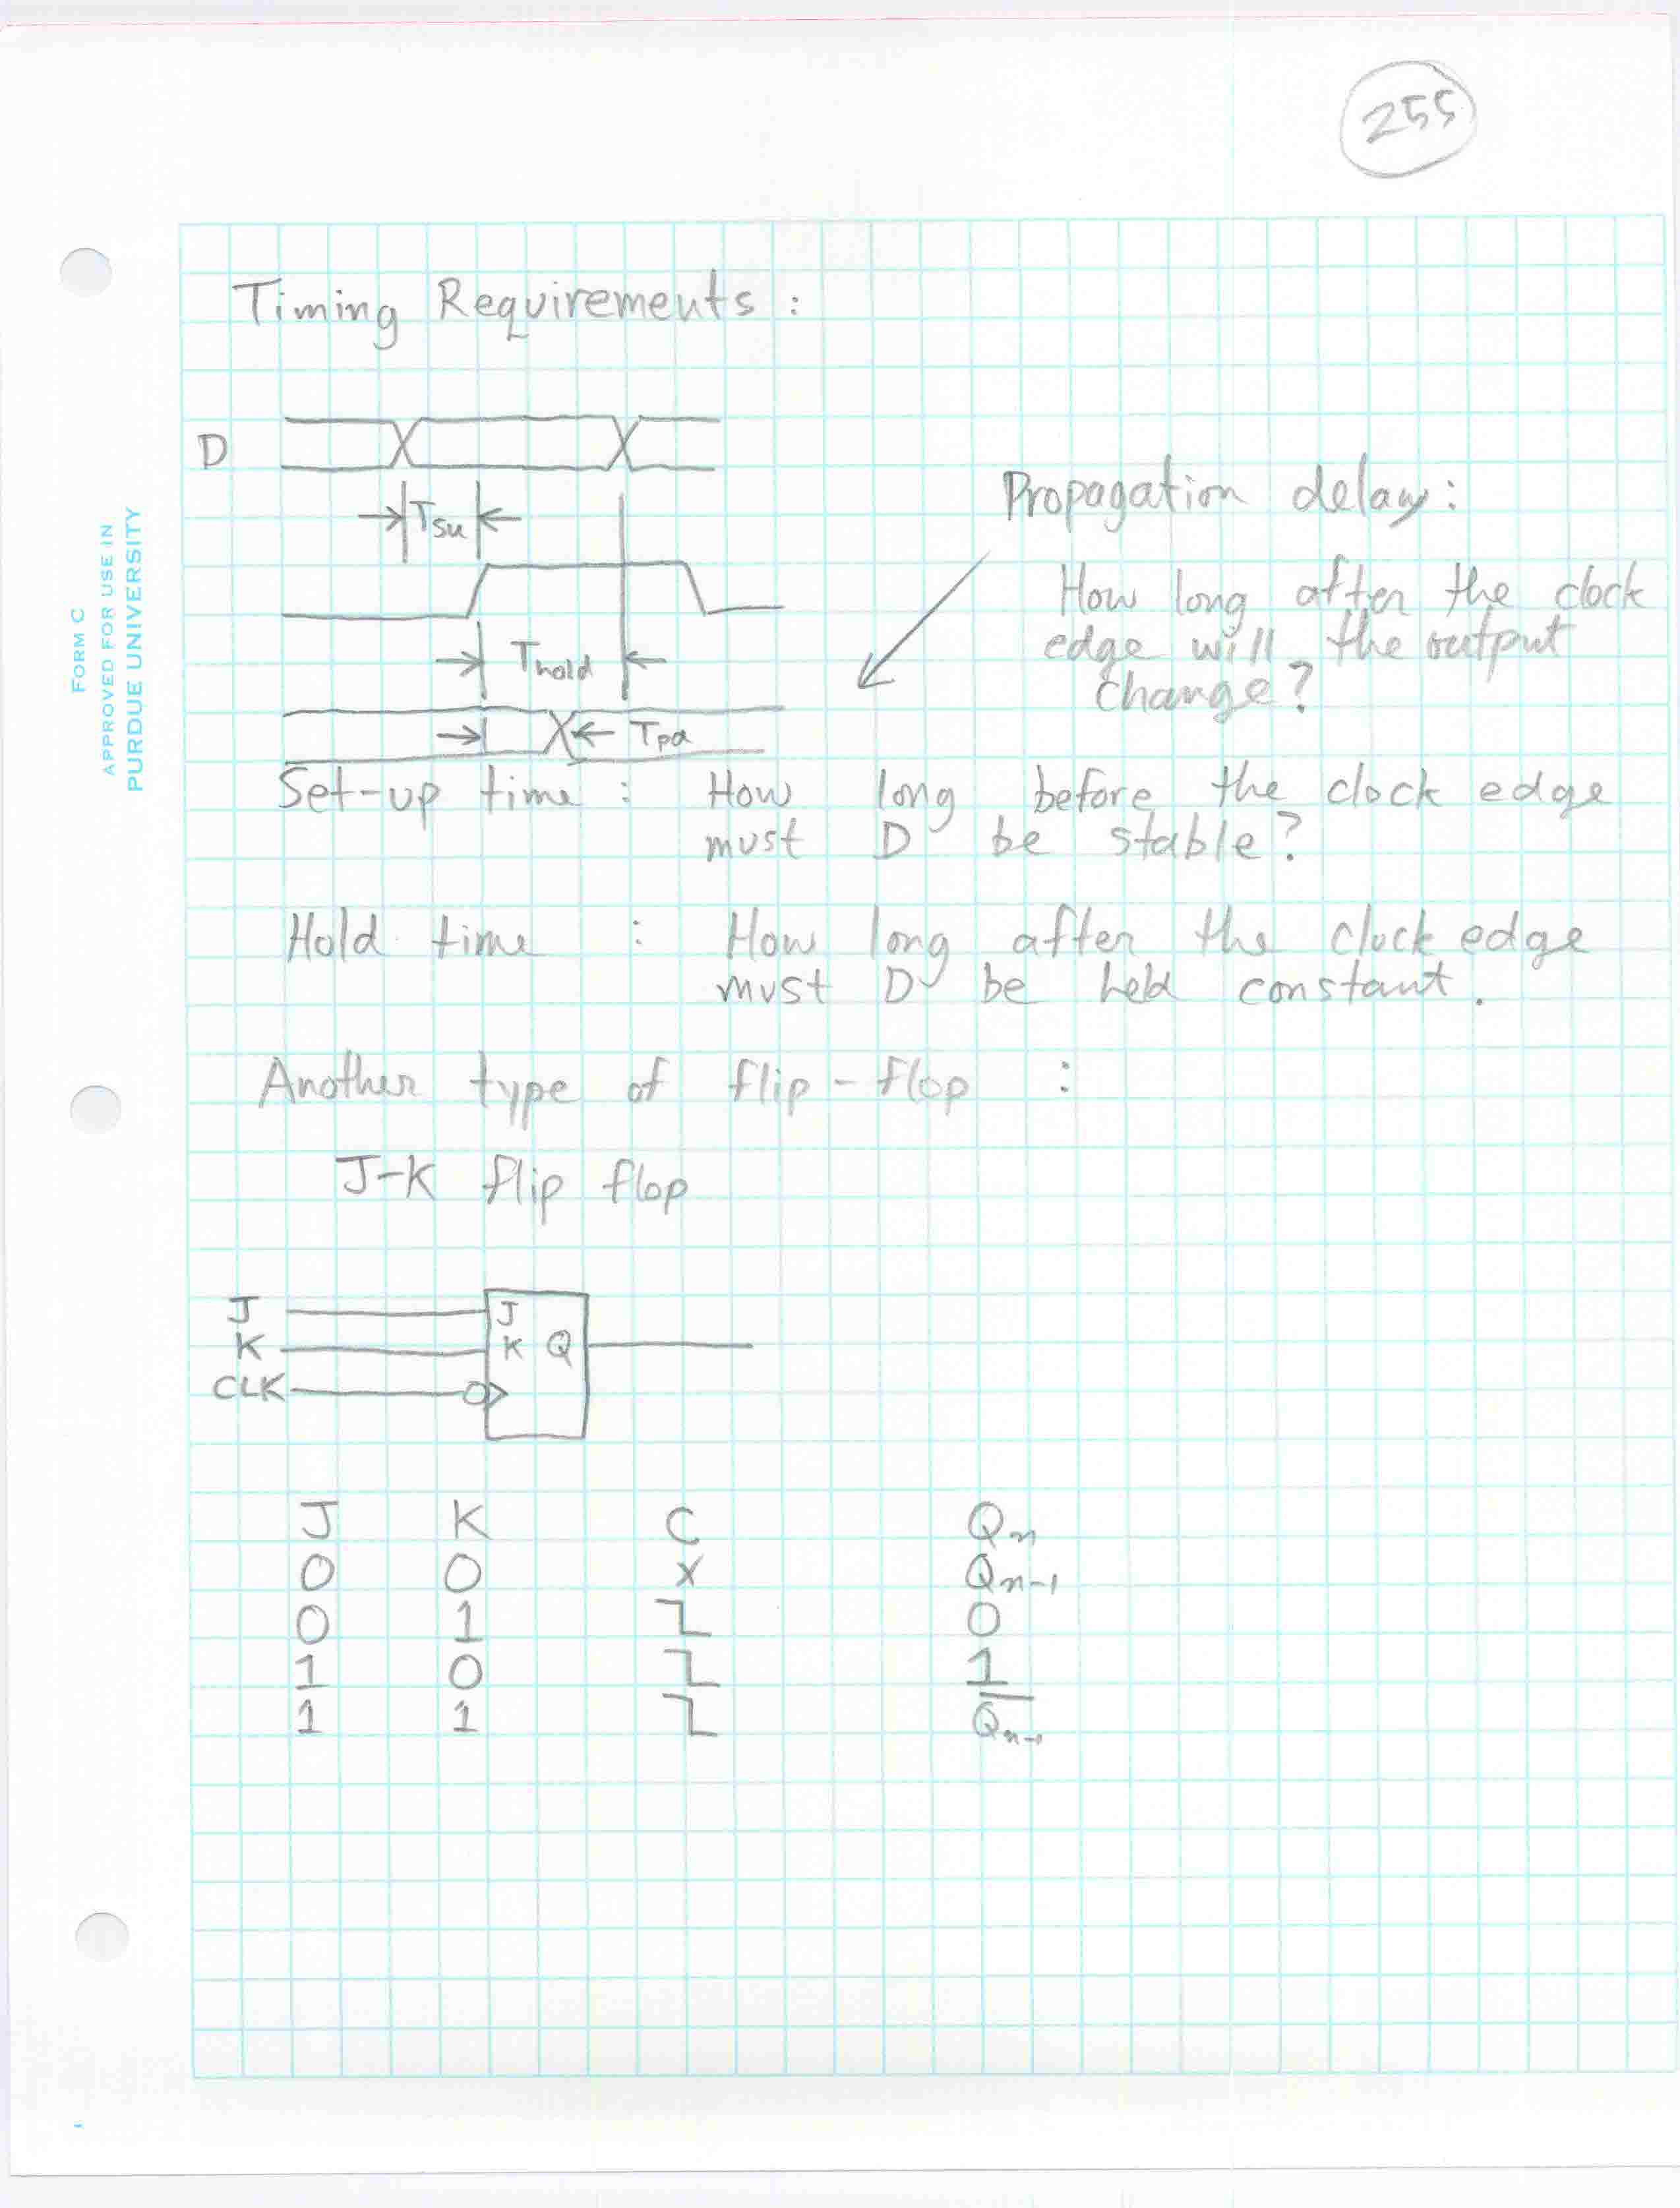 255
FORM C
APPROVED FOR USE IN
PURDUE UNIVERSITY
Timing Requirements :
D
Tsu
Propagation delay:
How long after the clock
edge will the output
change?
Thold
Tpd
Set-up time : How long before the clock edge
must D be stable?
Hold time : How long after the clock edge
must D be held constant.
Another type of flip-flop :
J-K flip flop
J J
K K Q
CLK
J K C Qn
0 0 X Qn-1
0 1 0
1 0 1
1 1 Q̅n-1